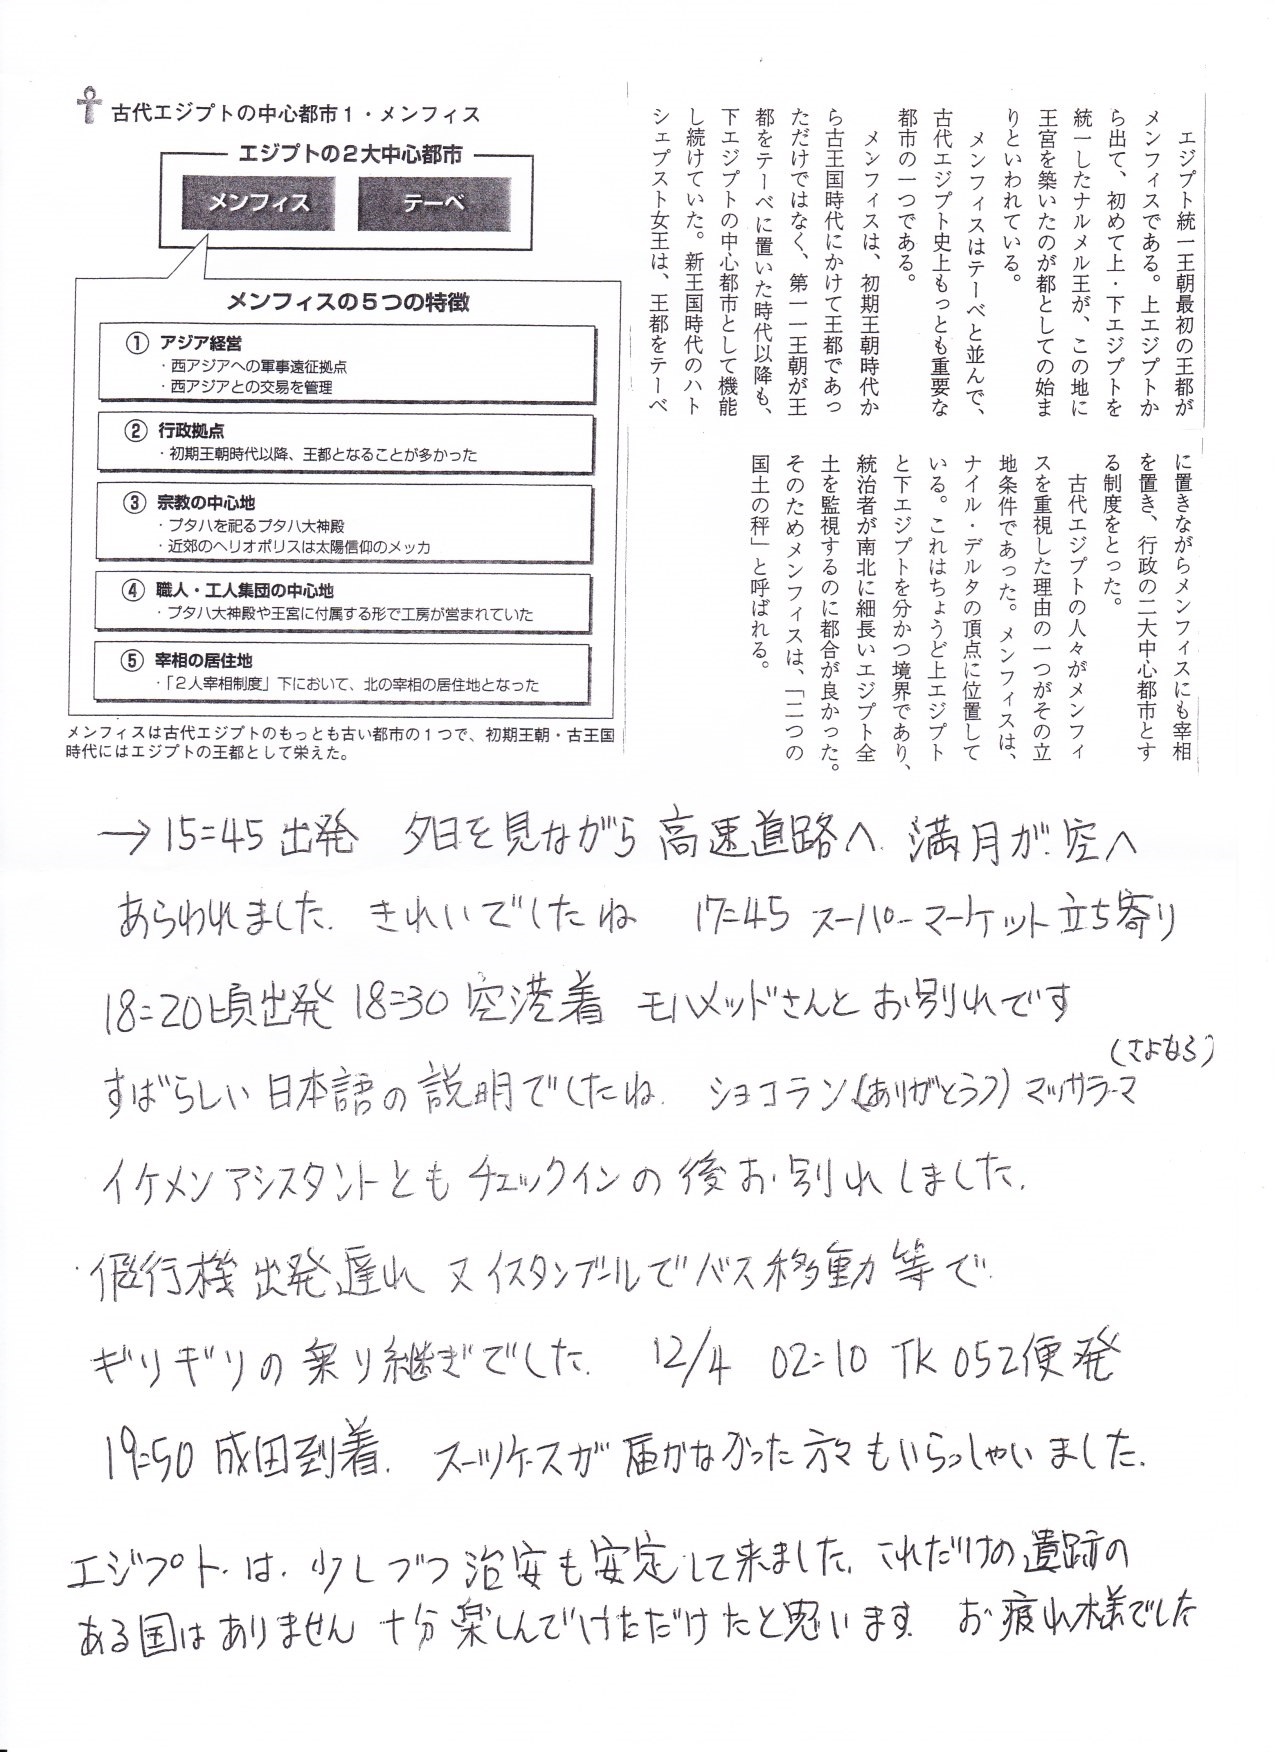 古代エジプトの中心都市1・メンフィス
エジプトの2大中心都市
メンフィス
テーベ
メンフィスの5つの特徴
① アジア経営
・西アジアへの軍事遠征拠点
・西アジアとの交易を管理
② 行政拠点
・初期王朝時代以降、王都となることが多かった
③ 宗教の中心地
・プタハを祀るプタハ大神殿
・近郊のヘリオポリスは太陽信仰のメッカ
④ 職人・工人集団の中心地
・プタハ大神殿や王宮に付属する形で工房が営まれていた
⑤ 宰相の居住地
・「2人宰相制度」下において、北の宰相の居住地となった
メンフィスは古代エジプトのもっとも古い都市の1つで、初期王朝・古王国
時代にはエジプトの王都として栄えた。
エジプト統一王朝最初の王都が
メンフィスである。上エジプトか
ら出て、初めて上・下エジプトを
統一したナルメル王が、この地に
王宮を築いたのが都としての始ま
りといわれている。
メンフィスはテーベと並んで、
古代エジプト史上もっとも重要な
都市の一つである。
メンフィスは、初期王朝時代か
ら古王国時代にかけて王都であっ
ただけではなく、第一一王朝が王
都をテーベに置いた時代以降も、
下エジプトの中心都市として機能
し続けていた。新王国時代のハト
シェプスト女王は、王都をテーベ
に置きながらメンフィスにも宰相
を置き、行政の二大中心都市とす
る制度をとった。
古代エジプトの人々がメンフィ
スを重視した理由の一つがその立
地条件であった。メンフィスは、
ナイル・デルタの頂点に位置して
いる。これはちょうど上エジプト
と下エジプトを分かつ境界であり、
統治者が南北に細長いエジプト全
土を監視するのに都合が良かった。
そのためメンフィスは、「二つの
国土の秤」と呼ばれる。
→15=45 出発 夕日を見ながら 高速道路へ. 満月が空へ
あらわれました. きれいでしたね 17=45 スーパーマーケット立ち寄り
18=20頃出発 18=30 空港着 モハメッドさんとお別れです
(さよなら)
すばらしい日本語の説明でしたね. ショコラン(ありがとう) マッサラーマ
イケメンアシスタントともチェックインの後お別れしました.
飛行機出発遅れ 又イスタンブールでバス移動等で
ギリギリの乗り継ぎでした. 12/4 02=10 TK052便発
19=50 成田到着. スーツケースが届かなかった方々もいらっしゃいました.
エジプトは.少しづつ治安も安定して来ました. これだけの遺跡の
ある国はありません 十分楽しんでいただけたと思います. お疲れ様でした